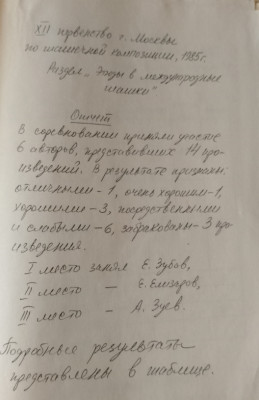 XII первенство г. Москвы
по шашечной композиции, 1985г.
Раздел „Этюды в международные
шашки"
Отчет
В соревновании приняли участие
6 авторов, представивших 14 про-
изведений. В результате признаны:
отличными - 1, очень хорошим - 1,
хорошими - 3, посредственными
и слабыми - 6, забракованы - 3 про-
изведения.
I место занял Е. Зубов,
II место — Е. Елизаров,
III место — А. Зуев.
Подробные результаты
представлены в таблице.